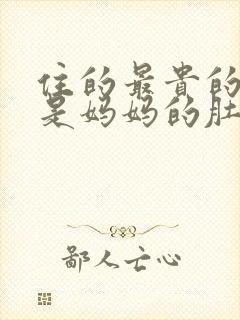 住的最贵的
是妈妈的肚
鄙人亡心